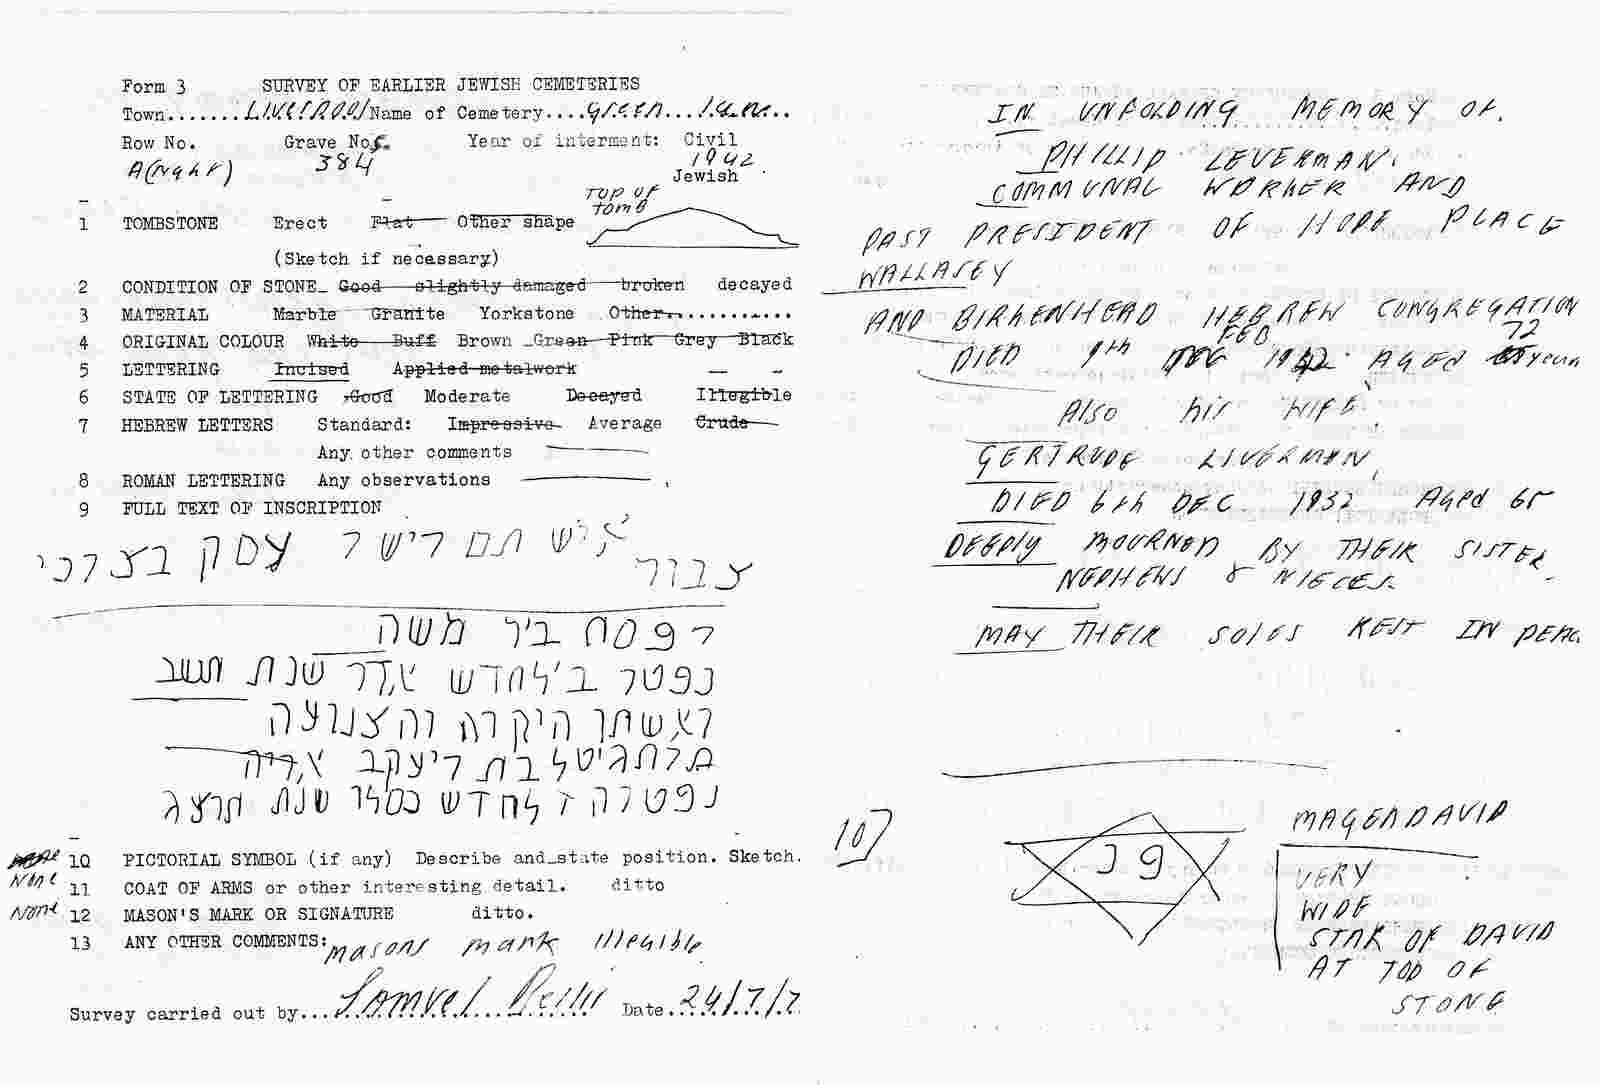 Form 3 SURVEY OF EARLIER JEWISH CEMETERIES
Town........Liverpool Name of Cemetery....Green Lane...
Row No. Grave No. Year of interment: Civil
A(Right) 384 1942
Jewish
TOP OF
TOMB
1 TOMBSTONE Erect Flat Other shape
(Sketch if necessary)
2 CONDITION OF STONE Good slightly damaged broken decayed
3 MATERIAL Marble Granite Yorkstone Other............
4 ORIGINAL COLOUR White Buff Brown Green Pink Grey Black
5 LETTERING Incised Applied metalwork
6 STATE OF LETTERING Good Moderate Decayed Illegible
7 HEBREW LETTERS Standard: Impressive Average Crude
Any other comments
8 ROMAN LETTERING Any observations
9 FULL TEXT OF INSCRIPTION
איש תם וישר עסק בצרכי
צבור
ר פסח ב״ר משה
נפטר כ״ב לחדש אדר שנת תשב
ואשתו היקרה והצנועה
מרת גיטל בת ר יעקב אריה
נפטרה ז לחדש כסלו שנת תרצג
None 10 PICTORIAL SYMBOL (if any) Describe and state position. Sketch.
None 11 COAT OF ARMS or other interesting detail. ditto
None 12 MASON'S MARK OR SIGNATURE ditto.
13 ANY OTHER COMMENTS: masons mark illegible
Survey carried out by...Samuel Date.24/7/7
IN UNFOLDING MEMORY OF.
PHILLIP LEVERMAN
COMMUNAL WORKER AND
PAST PRESIDENT OF HOPE PLACE
WALLASEY
AND BIRKENHEAD HEBREW CONGREGATION
DIED 9th FEB 1942 AGED 72 years
Also his WIFE
GERTRUDE LIVERMAN
DIED 6th DEC 1932 Aged 65
DEEPLY MOURNED BY THEIR SISTER
NEPHEWS & NIECES.
MAY THEIR SOLES REST IN PEAC
10)
פ נ
MAGEN DAVID
VERY
WIDE
STAR OF DAVID
AT TOP OF
STONE